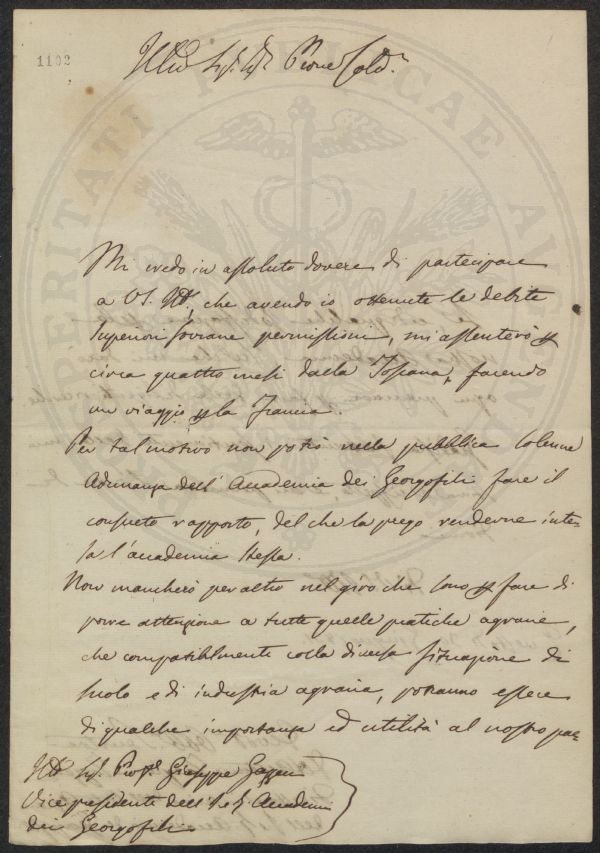 1102
Illmo Sig. Sig. Prone Colmo
Mi credo in assoluto dovere di partecipare
a VS. Illma, che avendo io ottenute le debite
Superiori Sovrane permissioni, mi assenterò p
circa quattro mesi dalla Toscana, facendo
un viaggio p la Francia.
Per tal motivo non potrò nella pubblica Solenne
Adunanza dell'Accademia dei Georgofili fare il
consueto rapporto, del che la prego renderne inte-
sa l'accademia stessa.
Non mancherò per altro nel giro che sono p fare di
porre attenzione a tutte quelle pratiche agrarie,
che compatibilmente colla diversa situazione di
suolo e di industria agraria, potranno essere
di qualche importanza ed utilità al nostro pae-
Illmo Sig. Profe Giuseppe Gazzeri
Vice presidente dell'I. e R. Accademia
dei Georgofili
PROSPERITATI PUBLICAE AUGENDAE